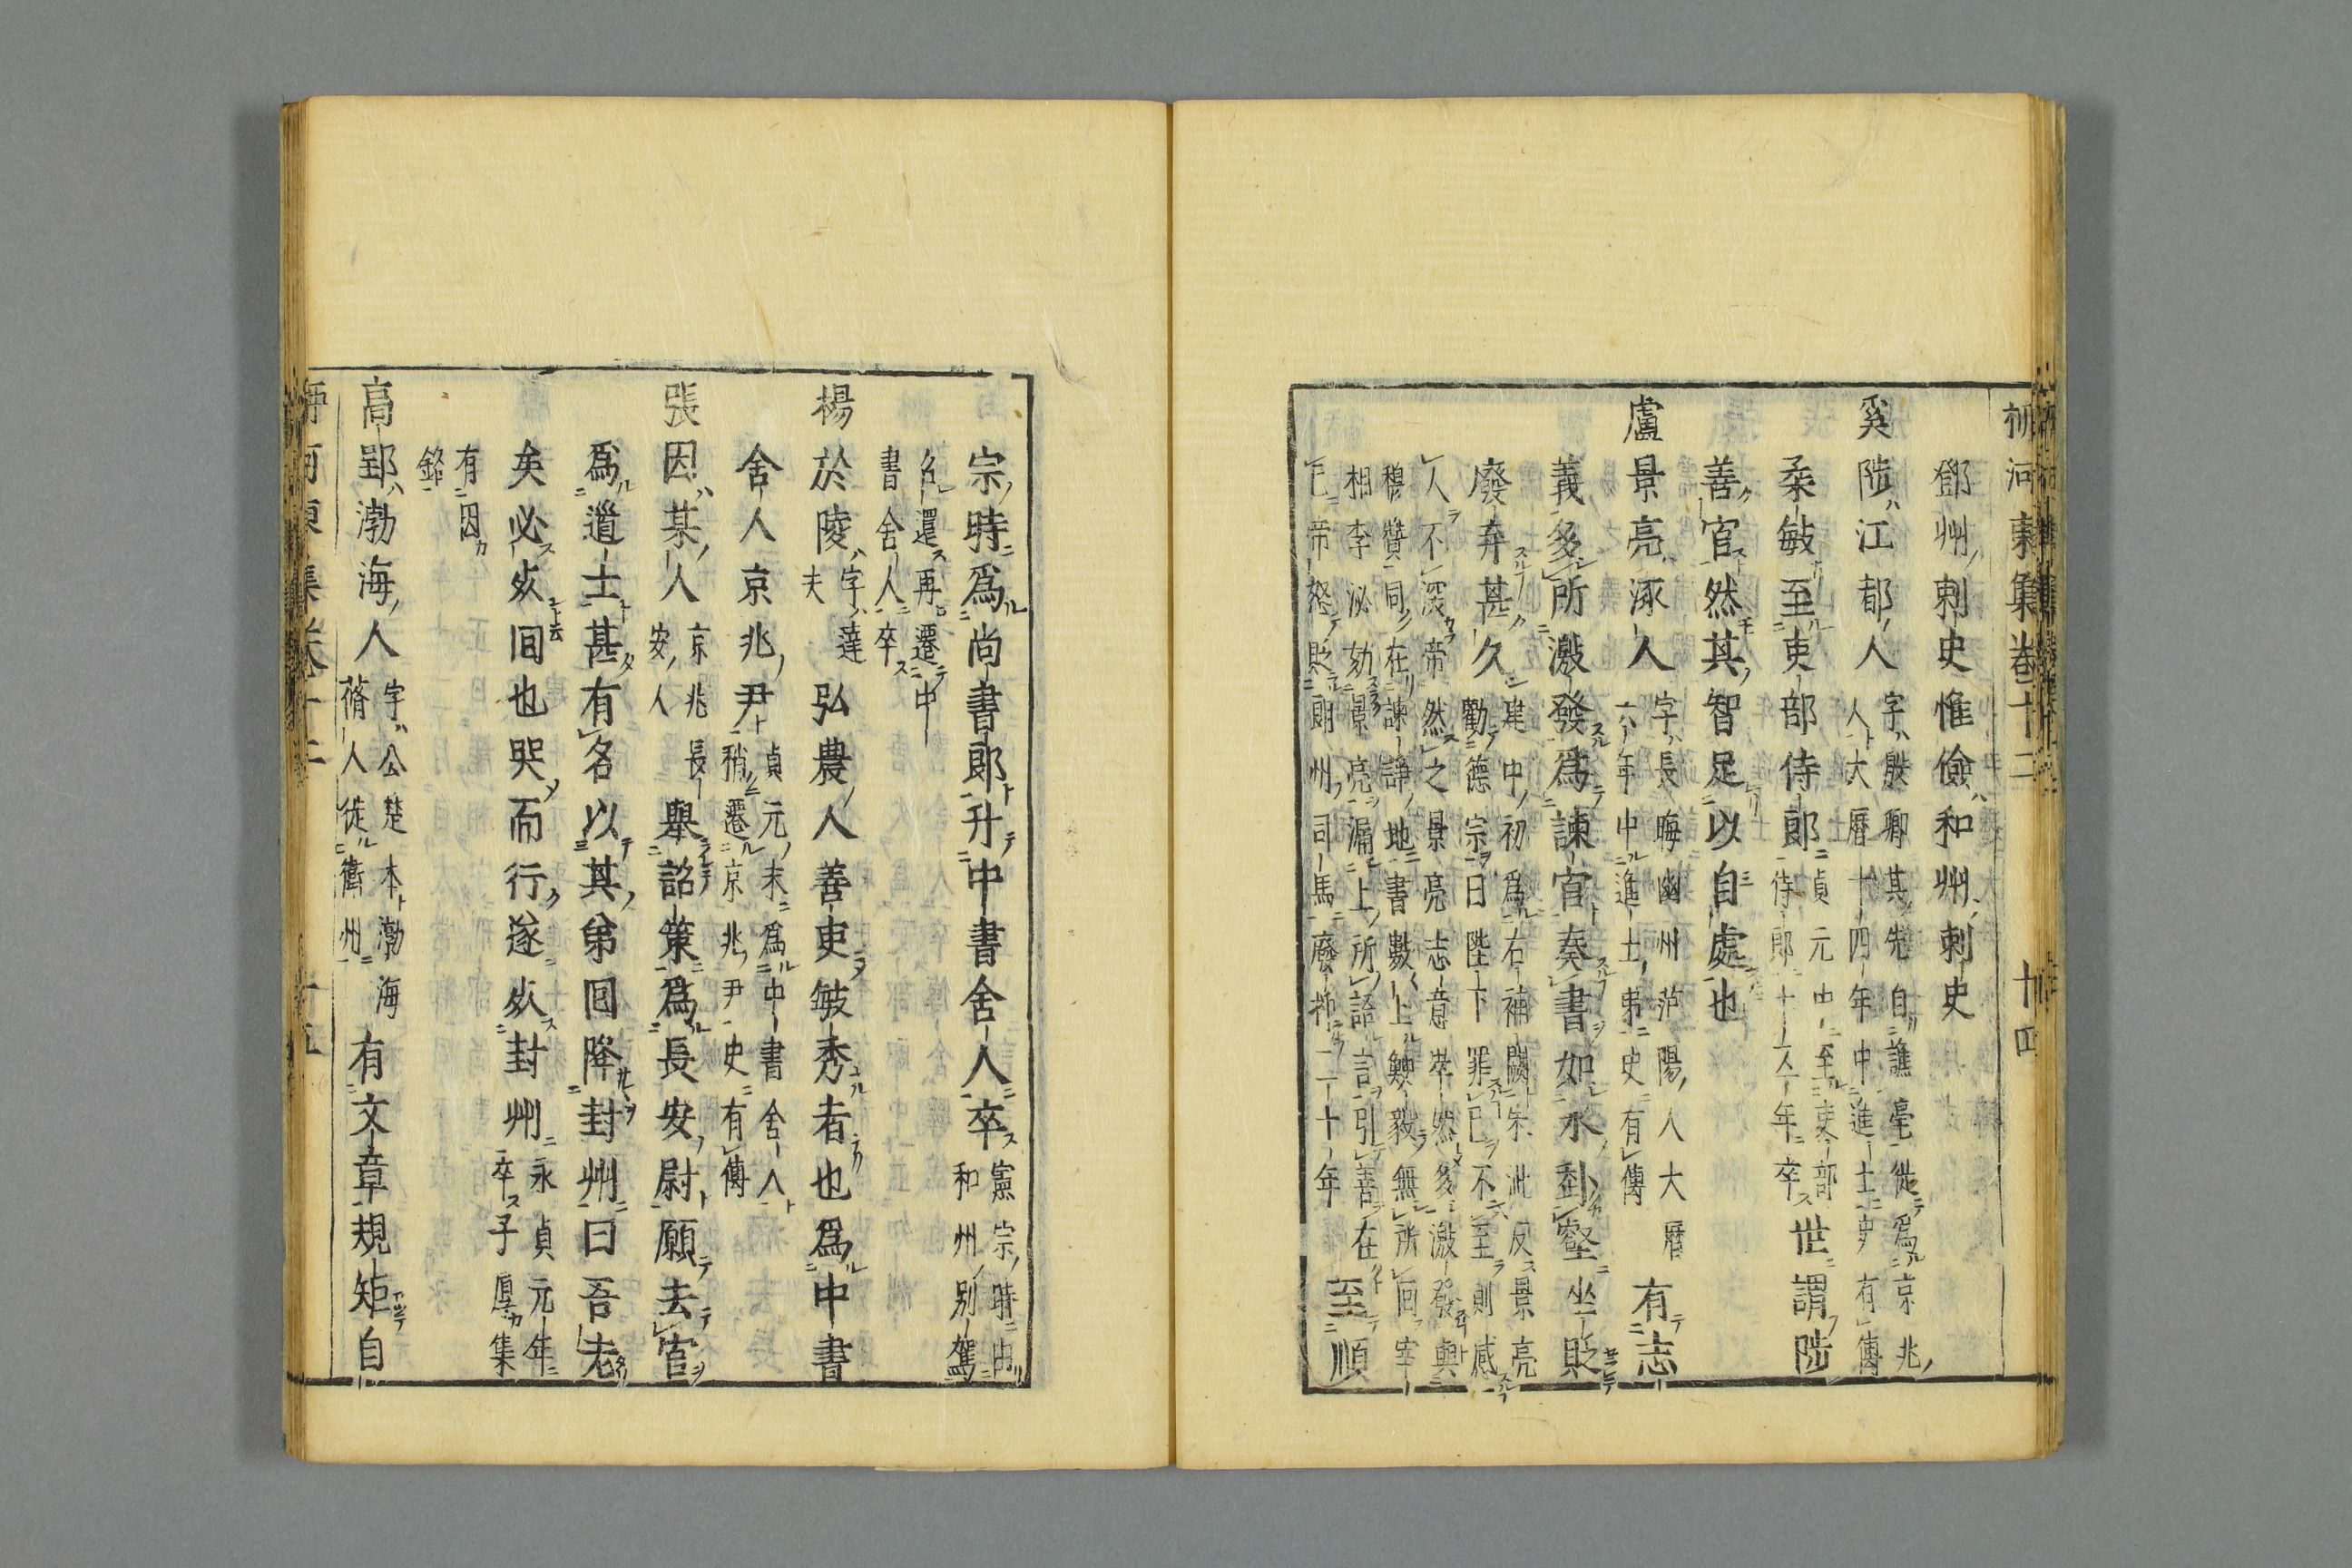 柳河東集卷十二 十四
鄧州刺史惟儉和州刺史
奚陟江都人
字殷卿其先自譙亳徙爲京兆
人大曆十四年中進士史有傳
柔敏至吏部侍郎
貞元中至吏部
侍郎十五年卒
世謂陟
善官然其智足以自處也
盧景亮涿人
字長晦幽州范陽人大曆
六年中進士第史有傳
有志
義多所激發爲諫官奏書如水赴壑坐貶
廢弃甚久
建中初爲右補闕朱泚反景亮
勸德宗曰陛下罪已不至則感
人不深帝然之景亮志意崒然多激發與
穆贊同在諫諍地書數上鯁毅無所回宰
相李泌劾景亮漏上所語言引善在
已帝怒貶朗州司馬廢抑二十年
至順
宗時爲尚書郎升中書舍人卒
憲宗時由
和州別駕
名還再遷中
書舍人卒
楊於陵
字達
夫
弘農人善吏敏秀者也爲中書
舍人京兆尹
貞元末爲中書舍人
稍遷京兆尹史有傳
張因某人
京兆長
安人
舉詔策爲長安尉願去官
爲道士甚有名以其弟回降封州曰吾老
矣必死回也哭而行遂死封州
永貞元年
卒子厚集
有因
銘
高郢渤海人
字公楚本渤海
脩人徙衞州
有文章規矩自